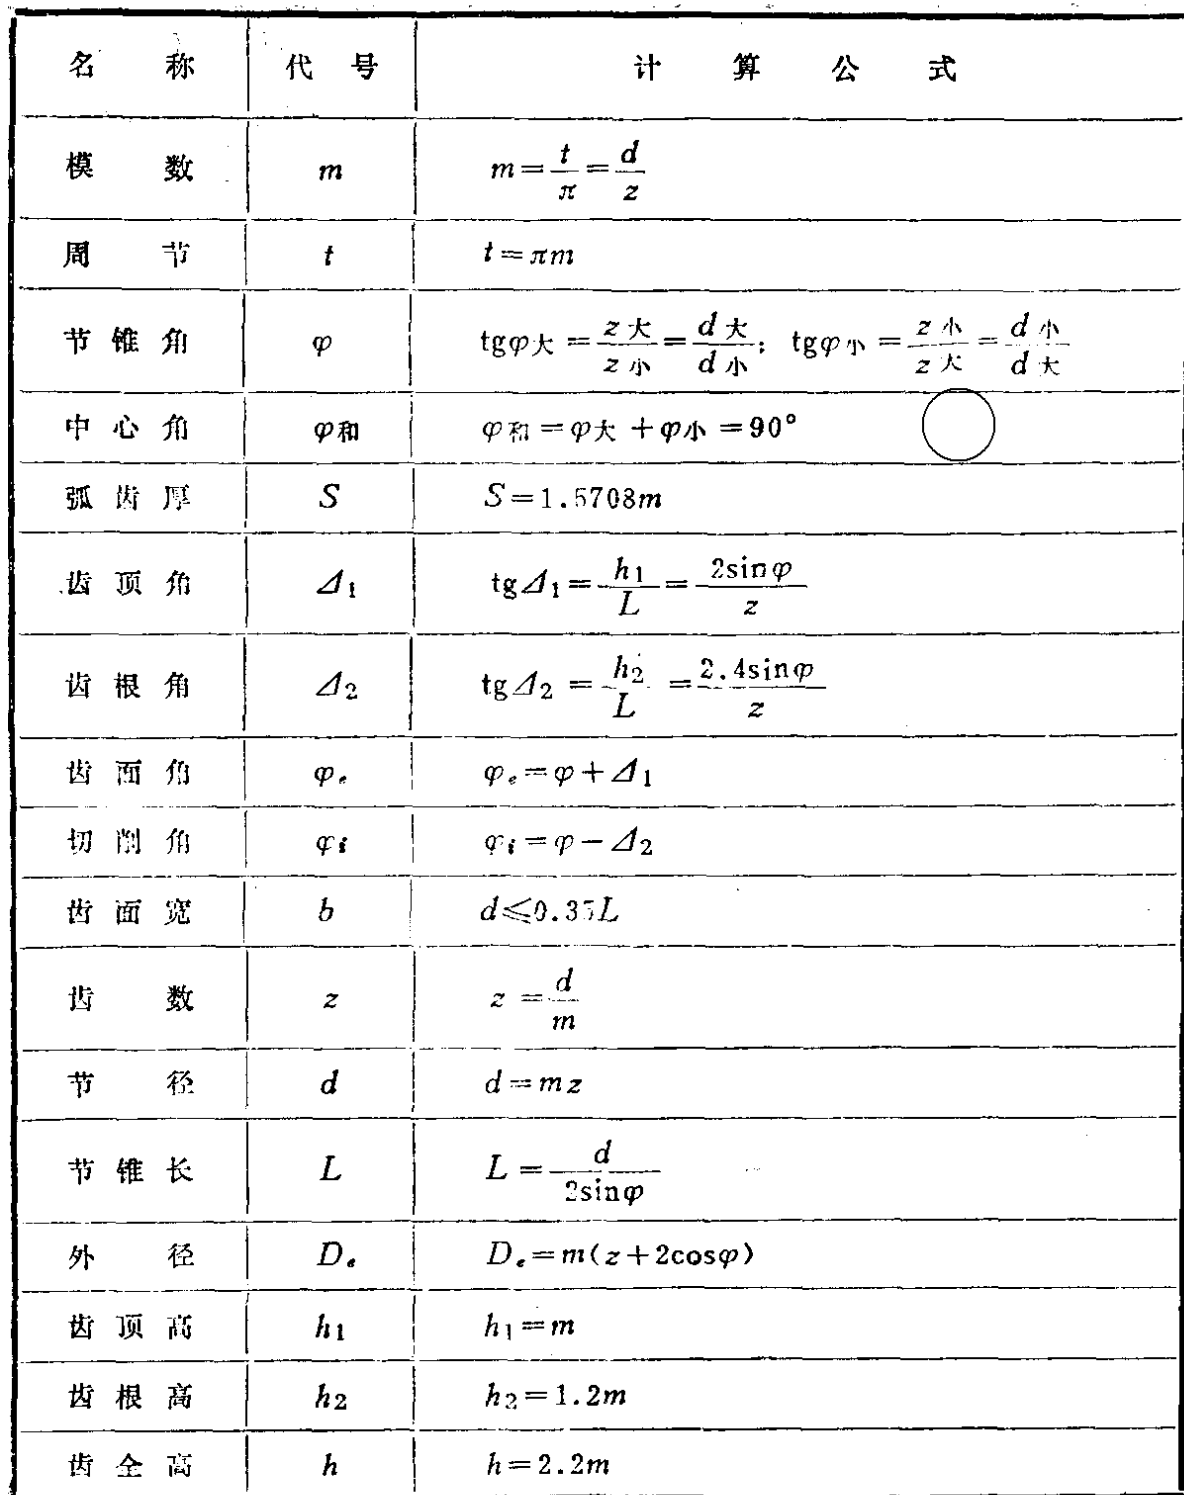 名称 代号 计算公式
模数 m m=t/π=d/z
周节 t t=πm
节锥角 φ tgφ大=z大/z小=d大/d小; tgφ小=z小/z大=d小/d大
中心角 φ和 φ和=φ大+φ小=90°
弧齿厚 S S=1.5708m
齿顶角 Δ1 tgΔ1=h1/L=2sinφ/z
齿根角 Δ2 tgΔ2=h2/L=2.4sinφ/z
齿面角 φe φe=φ+Δ1
切削角 φi φi=φ-Δ2
齿面宽 b d≤0.35L
齿数 z z=d/m
节径 d d=mz
节锥长 L L=d/2sinφ
外径 De De=m(z+2cosφ)
齿顶高 h1 h1=m
齿根高 h2 h2=1.2m
齿全高 h h=2.2m